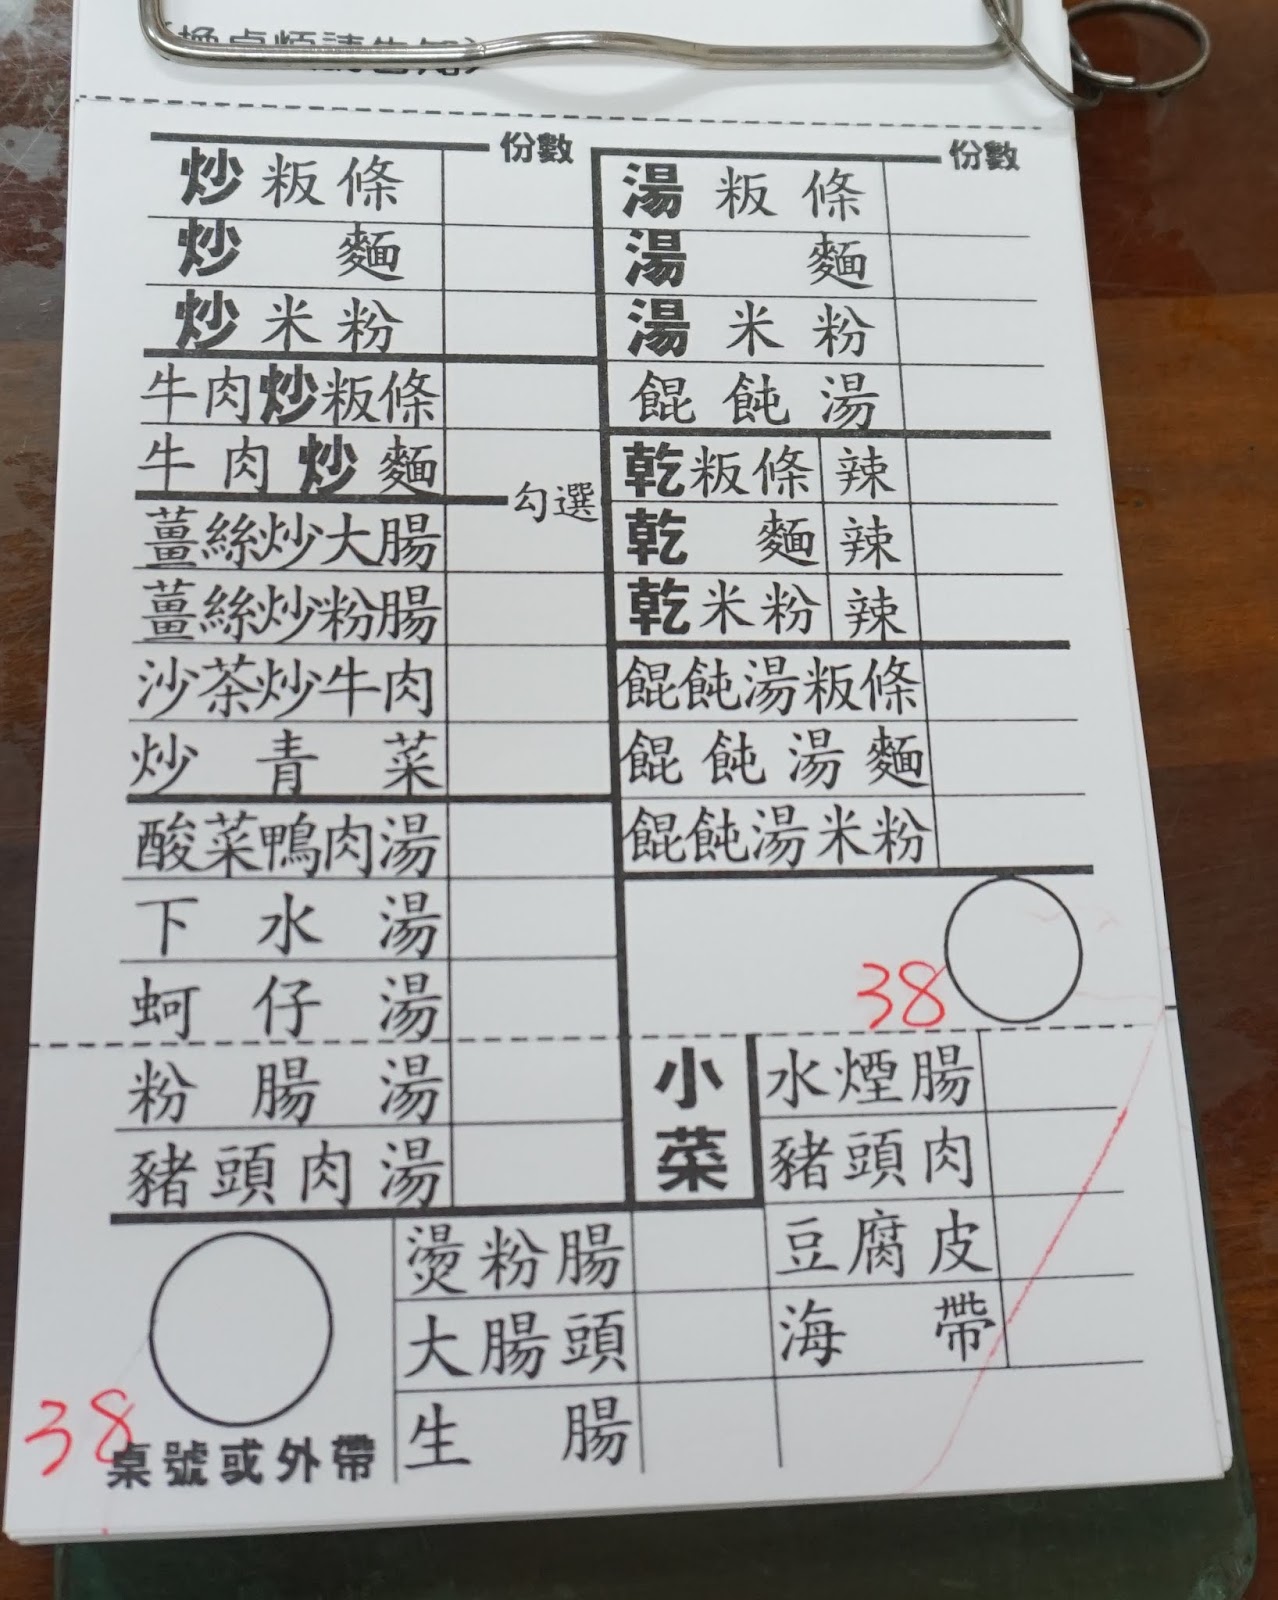 份數
炒粄條
炒麵
炒米粉
牛肉炒粄條
牛肉炒麵
勾選
薑絲炒大腸
薑絲炒粉腸
沙茶炒牛肉
炒青菜
酸菜鴨肉湯
下水湯
蚵仔湯
粉腸湯
豬頭肉湯
份數
湯粄條
湯麵
湯米粉
餛飩湯
乾粄條 辣
乾麵 辣
乾米粉 辣
餛飩湯粄條
餛飩湯麵
餛飩湯米粉
38
小菜
水煙腸
豬頭肉
豆腐皮
海帶
燙粉腸
大腸頭
生腸
38
桌號或外帶